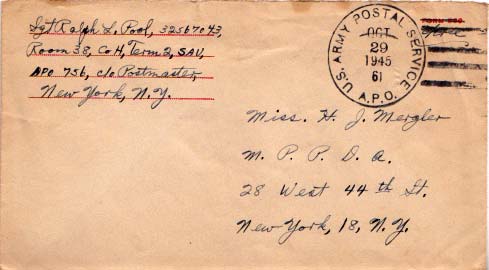 Sgt Ralph L. Pool, 32567043,
Room 38, Co H, Term 2, SAU,
APO 756, c/o Postmaster,
New York, N.Y.
U.S. ARMY POSTAL SERVICE
A.P.O.
OCT
29
1945
61
Free
Miss. H. J. Mergler
M. P. P. D. A.
28 West 44th St.
New York, 18, N.Y.